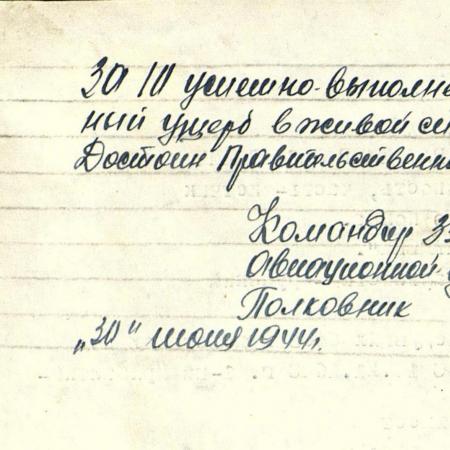 За 10 успешно-выполне
ный ущерб в живой си
Достоин Правительственн
Командир 33
Авиационной
Полковник
„30“ июня 1944г.